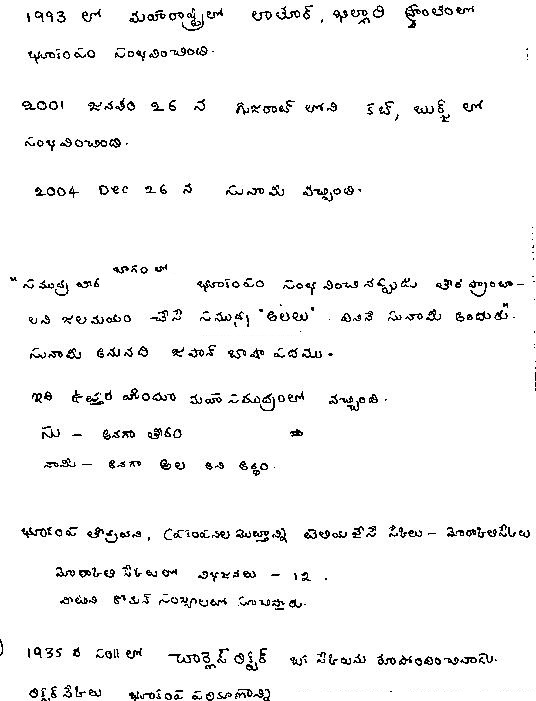 1993 లో మహారాష్ట్రలో లాతూర్, ఖిల్లారి ప్రాంతంలో
భూకంపం సంభవించింది.
2001 జనవరి 26 న గుజరాత్ లోని కచ్, బుర్జ్ లో
సంభవించింది.
2004 Dec 26 న సునామి వచ్చింది.
"సముద్ర తీర భాగంలో భూకంపం సంభవించినప్పుడు తీర ప్రాంతా-
లని జలమయం చేసే సముద్ర "అలలు". వీటినే సునామి అందురు".
సునామి అనునది జపాన్ భాషా పదము.
ఇది ఉత్తర హిందూ మహా సముద్రంలో వచ్చింది.
సు - అనగా తీరం
నామి - అనగా అల అని అర్థం.
భూకంప తీవ్రతని, ప్రకంపనల మొత్తాన్ని తెలియజేసే స్కేలు - మెర్కాలిస్కేలు
మెర్కాలి స్కేలులో విభజనలు - 12.
వాటిని రోమన్ సంఖ్యలలో సూచిస్తారు.
1935 వ సం॥లో చార్లెస్ రిక్టర్ ఈ స్కేలును రూపొందించినాడు.
రిక్టర్ స్కేలు భూకంప పరిమాణాన్ని